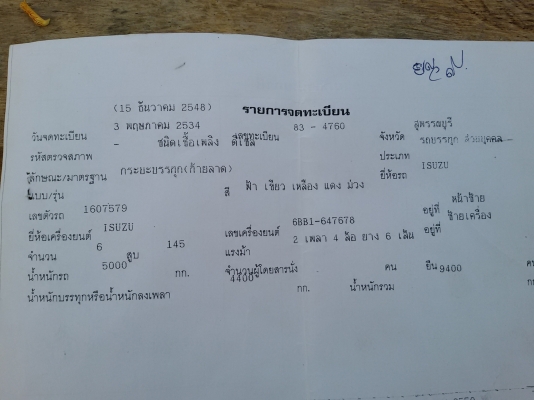 (15 ธันวาคม 2548) รายการจดทะเบียน
วันจดทะเบียน 3 พฤษภาคม 2534 เลขทะเบียน 83 - 4760 จังหวัด สุพรรณบุรี
รหัสตรวจสภาพ - ชนิดเชื้อเพลิง ดีเซล ประเภท รถบรรทุก ส่วนบุคคล
ลักษณะ/มาตรฐาน กระบะบรรทุก(ท้ายลาด) ยี่ห้อรถ ISUZU
แบบ/รุ่น สี ฟ้า เขียว เหลือง แดง ม่วง
เลขตัวรถ 1607579 อยู่ที่ หน้าซ้าย
ยี่ห้อเครื่องยนต์ ISUZU เลขเครื่องยนต์ 6BB1-647678 อยู่ที่ ซ้ายเครื่อง
จำนวน 6 สูบ 145 แรงม้า 2 เพลา 4 ล้อ ยาง 6 เส้น
น้ำหนักรถ 5000 กก. จำนวนผู้โดยสารนั่ง คน ยืน
น้ำหนักบรรทุกหรือน้ำหนักลงเพลา 4400 กก. น้ำหนักรวม 9400